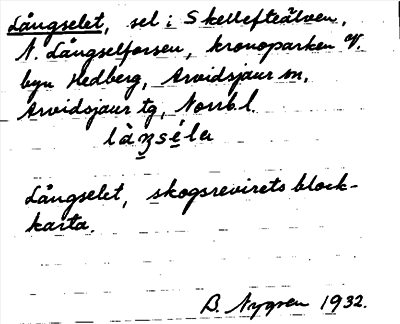 Långselet, sel i Skellefteälven,
N. Långselforsen, kronoparken v.
byn Hedberg, Arvidsjaur sn,
Arvidsjaur tg, Norrb.l.
Långselet, skogsrevirets block-
karta.
B. Nygren 1932.